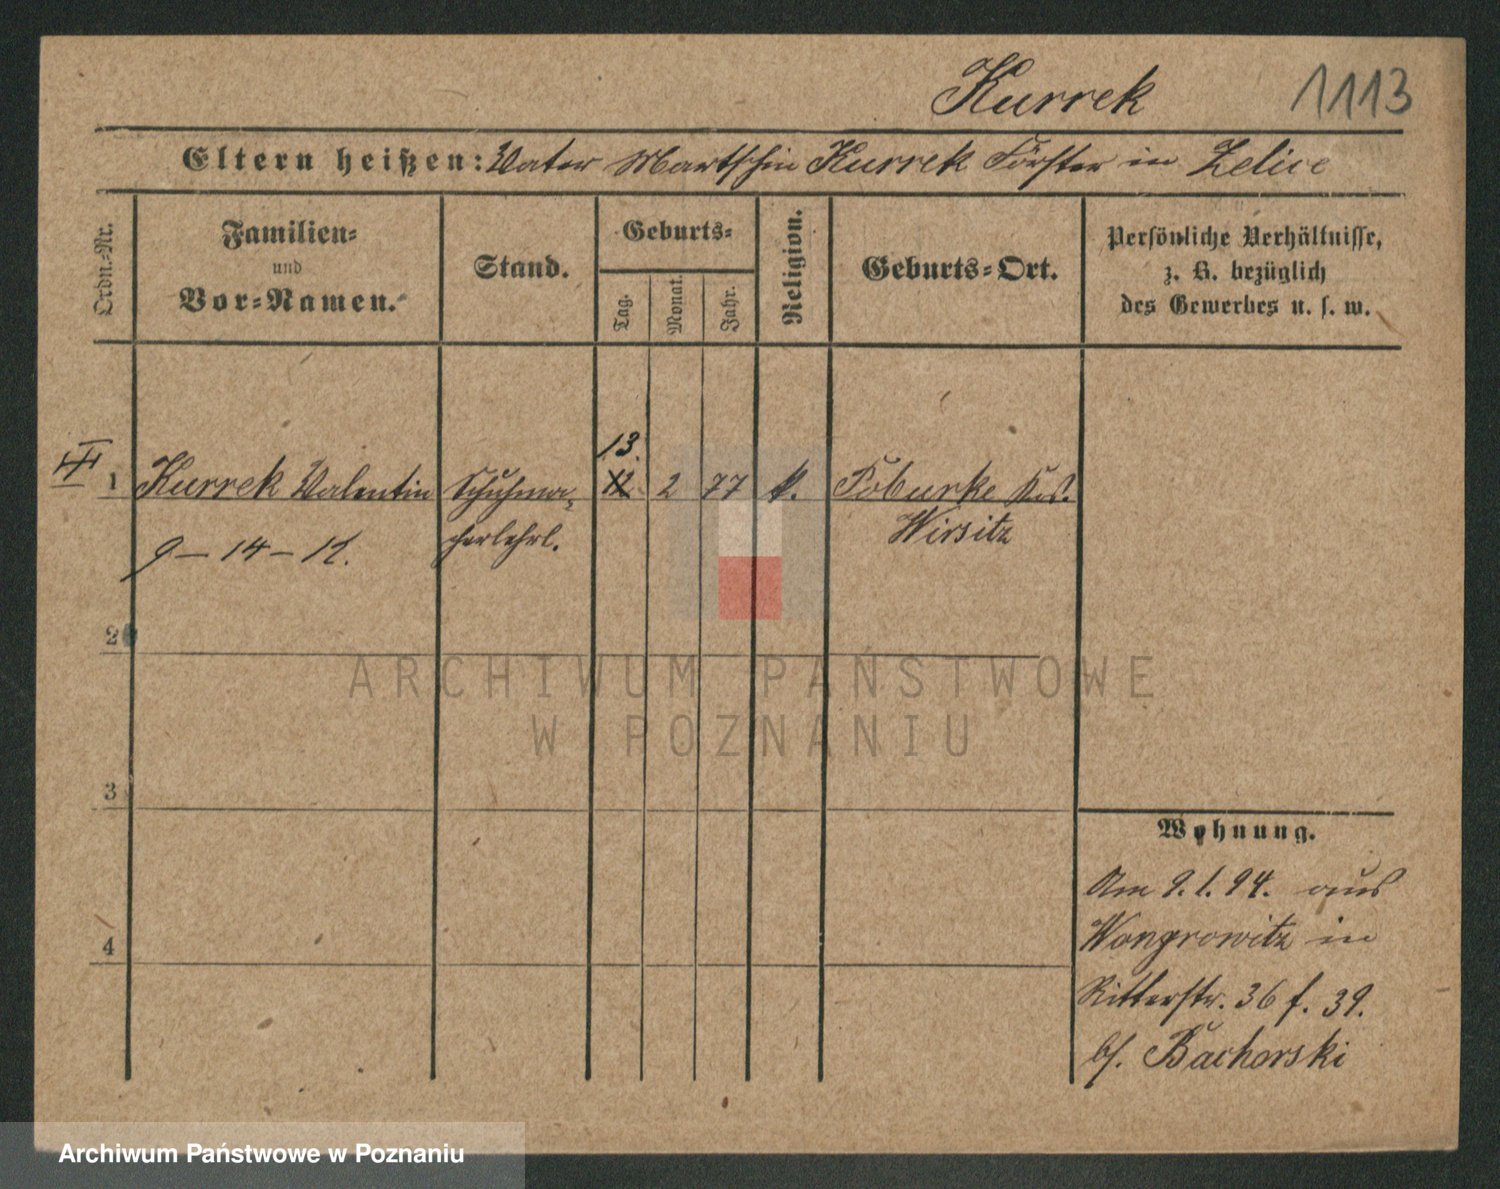 Kurrek 1113
Eltern heißen: Vater Martschin Kurrek Förster in Zelice
Ordn.-Nr.
Familien-
und
Vor-Namen.
Stand.
Geburts-
Tag.
Monat.
Jahr.
Religion.
Geburts-Ort.
Persönliche Verhältnisse,
z. B. bezüglich
des Gewerbes u. s. w.
13.
1 Kurrek Valentin Schuhma- 12 2 77 k. Toburke Krs.
cherlehrl. Wirsitz
9 – 14 – 11.
2
3
4
Wohnung.
Am 9.1.94. aus
Wongrowitz in
Ritterstr. 36 f. 39.
bf. Bachorski
ARCHIWUM PAŃSTWOWE
W POZNANIU
Archiwum Państwowe w Poznaniu